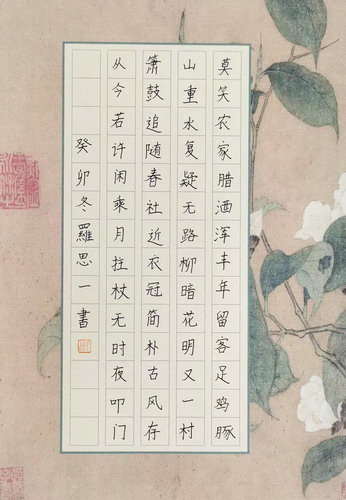 莫笑农家腊酒浑丰年留客足鸡豚
山重水复疑无路柳暗花明又一村
箫鼓追随春社近衣冠简朴古风存
从今若许闲乘月拄杖无时夜叩门
癸卯冬羅思一書